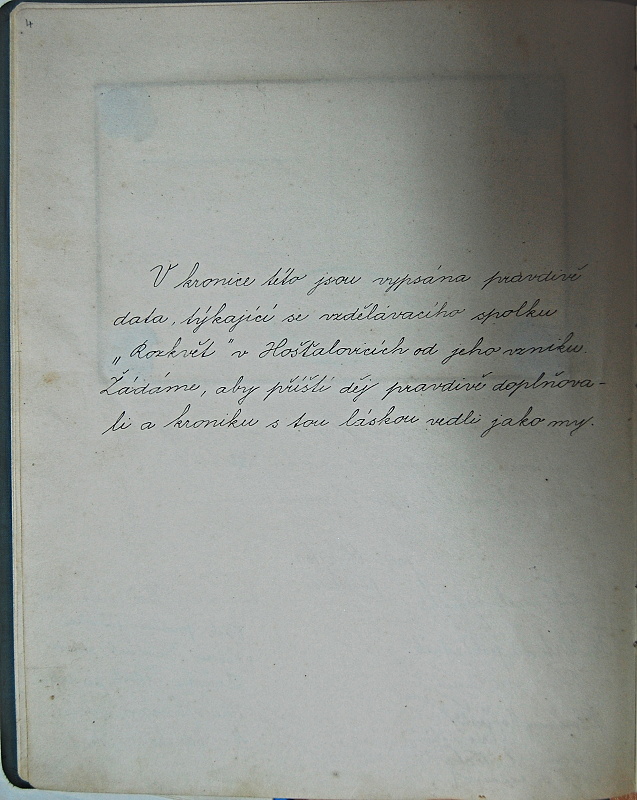 4
V kronice této jsou vypsána pravdivě
data, týkající se vzdělávacího spolku
„Rozkvět" v Hošťalovicích od jeho vzniku.
Žádáme, aby příští děj pravdivě doplňova-
li a kroniku s tou láskou vedli jako my.